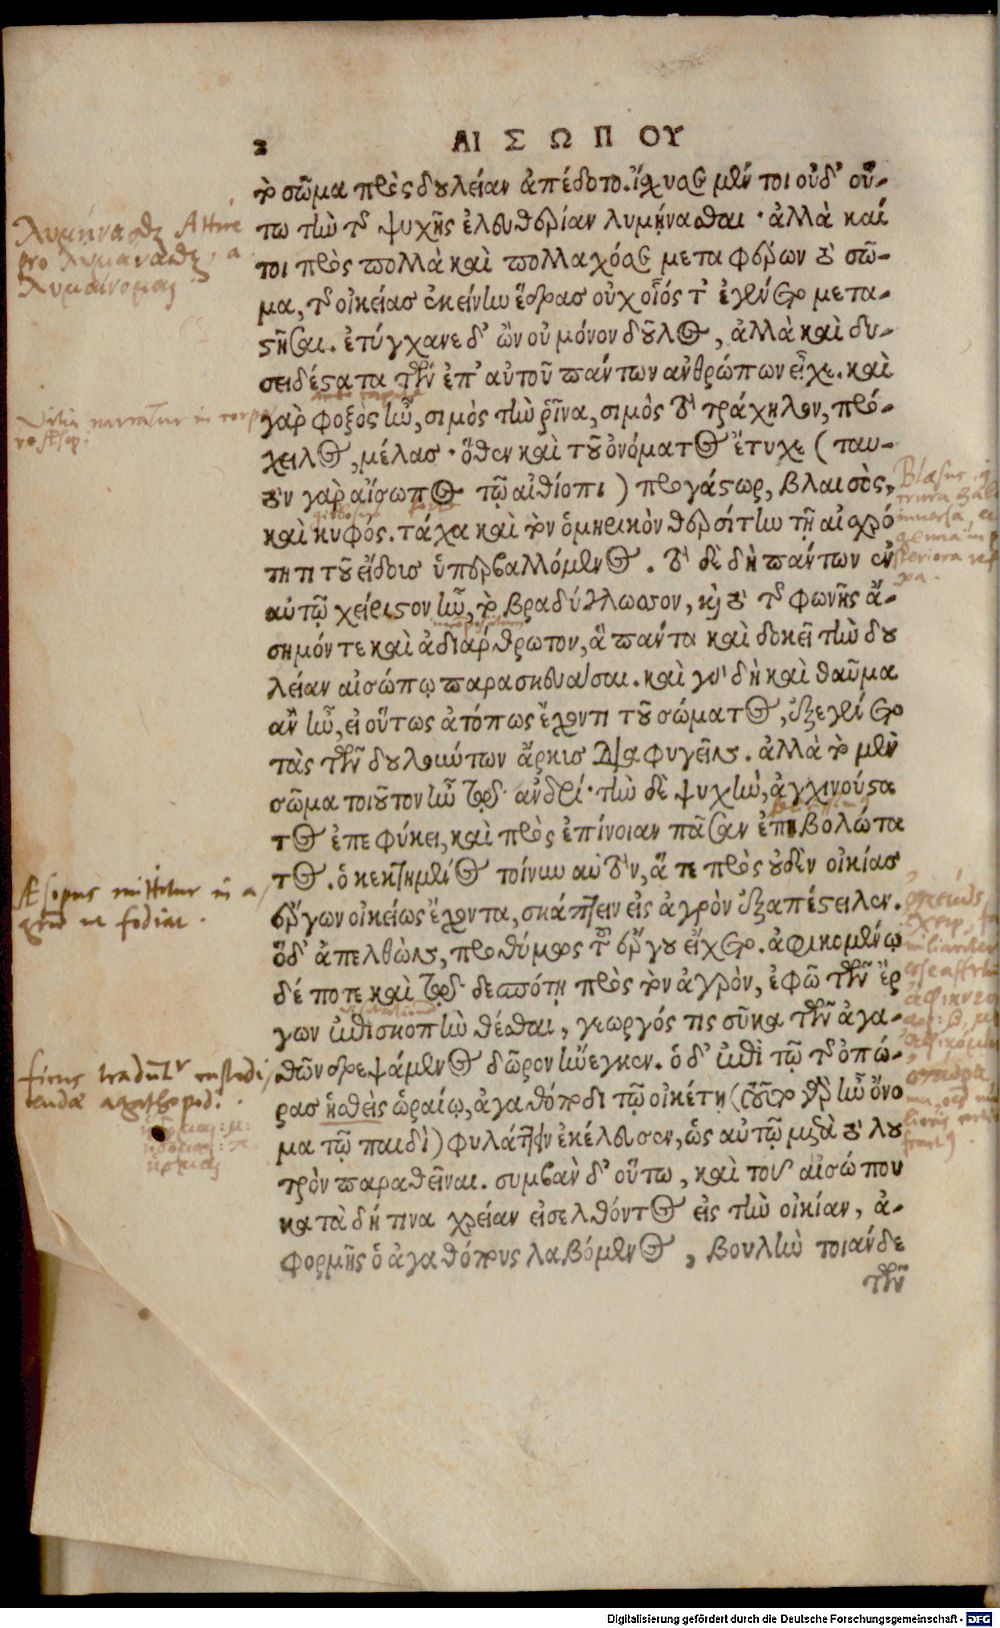 2 ΑΙΣΩΠΟΥ
τὸ σῶμα πρὸς δουλείαν ἀπέδοτο. ἴσχυσε μέν τοι οὐδ' οὕ-
τω τὴν τῆς ψυχῆς ἐλευθερίαν λυμήνασθαι· ἀλλὰ καί
τοι πρὸς πολλὰ καὶ πολλαχόσε μεταφέρων τὸ σῶ-
μα, τῆς οἰκείας ἐκείνην ἕδρας οὐχ οἷός τ' ἐγένετο μετα-
στῆσαι. ἐτύγχανε δ' ὢν οὐ μόνον δοῦλος, ἀλλὰ καὶ δυ-
σειδέστατα τῶν ἐπ' αὐτοῦ πάντων ἀνθρώπων εἶχε. καὶ
γὰρ φοξὸς ἦν, σιμὸς τὴν ῥῖνα, σιμὸς τὸν τράχηλον, πρό-
χειλος, μέλας· ὅθεν καὶ τοῦ ὀνόματος ἔτυχε (ταυ-
τὸν γὰρ αἴσωπος τῷ αἰθίοπι) προγάστωρ, βλαισὸς,
καὶ κυφός. τάχα καὶ τὸν ὁμηρικὸν θερσίτην τῇ αἰσχρό
τητι τοῦ εἴδους ὑπερβαλλόμενος. τὸ δὲ δὴ πάντων ἐν
αὐτῷ χείριστον ἦν, τὸ βραδύγλωσσον, καὶ τὸ τῆς φωνῆς ἄ-
σημόν τε καὶ ἀδιάρθρωτον, ἃ πάντα καὶ δοκεῖ τὴν δου
λείαν αἰσώπῳ παρασκευάσαι. καὶ γὰρ δὴ καὶ θαῦμα
ἂν ἦν, εἰ οὕτως ἀτόπως ἔχοντι τοῦ σώματος, ἐξεγένετο
τὰς τῶν δουλούντων ἄρκυς διαφυγεῖν. ἀλλὰ τὸ μὲν
σῶμα τοιοῦτον ἦν τῷ ἀνδρί· τὴν δὲ ψυχὴν, ἀγχινούστα
τος ἐπεφύκει, καὶ πρὸς ἐπίνοιαν πᾶσαν ἐπηβολώτα
τος. ὁ κεκτημένος τοίνυν αὐτὸν, ἅτε πρὸς οὐδὲν οἰκίας
ἔργων οἰκείως ἔχοντα, σκάπτειν εἰς ἀγρὸν ἐξαπέστειλεν.
ὅδ' ἀπελθὼν, προθύμως τοῦ ἔργου εἴχετο. ἀφικομένῳ
δέ ποτε καὶ τῷ δεσπότῃ πρὸς τὸν ἀγρὸν, ἐφ' ᾧ τῶν ἔρ
γων ἐπισκοπὴν θέσθαι, γεωργός τις σῦκα τῶν ἀγα-
θῶν δρεψάμενος δῶρον ἤνεγκεν. ὁ δ' ἐπὶ τῷ τῆς ὀπώ-
ρας ἡσθεὶς ὡραίῳ, ἀγαθόποδι τῷ οἰκέτῃ (τοῦτο γὰρ ἦν ὄνο
μα τῷ παιδὶ) φυλάττειν ἐκέλευσεν, ὡς αὐτῷ μετὰ τὸ λου
τρὸν παραθεῖναι. συμβὰν δ' οὕτω, καὶ τοῦ αἰσώπου
κατὰ δή τινα χρείαν εἰσελθόντος εἰς τὴν οἰκίαν, ἀ-
φορμῆς ὁ ἀγαθόπους λαβόμενος, βουλὴν τοιάνδε
τῶν
λυμήνασθαι Atticè
pro λυμανασθαι, a
λυμαίνομαι
Vitia narrantur in corpo
re Æsopi
Æsopus mittitur in a
grum ut fodiat.
ficus traduntur custodi
endæ agathopodi.
Digitalisierung gefördert durch die Deutsche Forschungsgemeinschaft - DFG